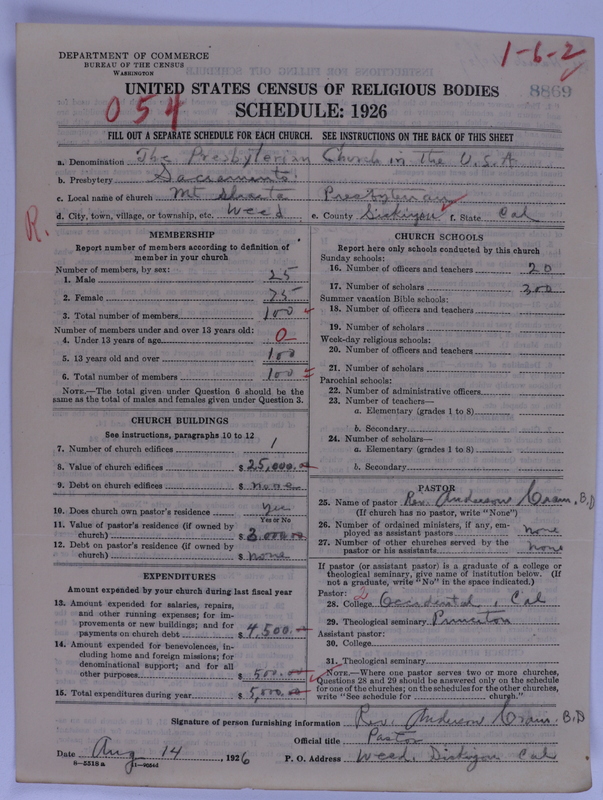 DEPARTMENT OF COMMERCE
BUREAU OF THE CENSUS
WASHINGTON
1-6-2
8869
UNITED STATES CENSUS OF RELIGIOUS BODIES
054
SCHEDULE: 1926
FILL OUT A SEPARATE SCHEDULE FOR EACH CHURCH. SEE INSTRUCTIONS ON THE BACK OF THIS SHEET
a. Denomination The Presbyterian Church in the U.S.A
b. Presbytery Sacramento
c. Local name of church Mt Shasta Presbyterian
d. City, town, village, or township, etc. Weed e. County Siskiyou f. State Cal
R.
MEMBERSHIP
Report number of members according to definition of
member in your church
Number of members, by sex:
1. Male 25
2. Female 75
3. Total number of members 100
Number of members under and over 13 years old:
4. Under 13 years of age 0
5. 13 years old and over 100
6. Total number of members 100
NOTE.—The total given under Question 6 should be the
same as the total of males and females given under Question 3.
CHURCH BUILDINGS
See instructions, paragraphs 10 to 12
7. Number of church edifices 1
8. Value of church edifices $ 25,000.00
9. Debt on church edifices $ none
10. Does church own pastor's residence? Yes
Yes or No
11. Value of pastor's residence (if owned by
church) $ 3,000.00
12. Debt on pastor's residence (if owned by
church) $ none
EXPENDITURES
Amount expended by your church during last fiscal year
13. Amount expended for salaries, repairs,
and other running expenses; for im-
provements or new buildings; and for
payments on church debt $ 4,500.—
14. Amount expended for benevolences, in-
cluding home and foreign missions; for
denominational support; and for all
other purposes $ 500.00
15. Total expenditures during year $ 5,000.00
CHURCH SCHOOLS
Report here only schools conducted by this church
Sunday schools:
16. Number of officers and teachers 20
17. Number of scholars 300
Summer vacation Bible schools:
18. Number of officers and teachers
19. Number of scholars
Week-day religious schools:
20. Number of officers and teachers
21. Number of scholars
Parochial schools:
22. Number of administrative officers
23. Number of teachers—
a. Elementary (grades 1 to 8)
b. Secondary
24. Number of scholars—
a. Elementary (grades 1 to 8)
b. Secondary
PASTOR
25. Name of pastor Rev. Anderson Crain. B.D
(If church has no pastor, write "None")
26. Number of ordained ministers, if any, em-
ployed as assistant pastors none
27. Number of other churches served by the
pastor or his assistants none
If pastor (or assistant pastor) is a graduate of a college or
theological seminary, give name of institution below. (If
not a graduate, write "No" in the space indicated.)
Pastor: 2
28. College Occidental, Cal
29. Theological seminary Princeton
Assistant pastor:
30. College
31. Theological seminary
NOTE.—Where one pastor serves two or more churches,
Questions 28 and 29 should be answered only on the schedule
for one of the churches; on the schedules for the other churches,
write "See schedule for church."
Signature of person furnishing information Rev. Anderson Crain. B.D
Official title Pastor
Date Aug 14, 1926 P. O. Address Weed, Siskiyou Cal
8-5518 a